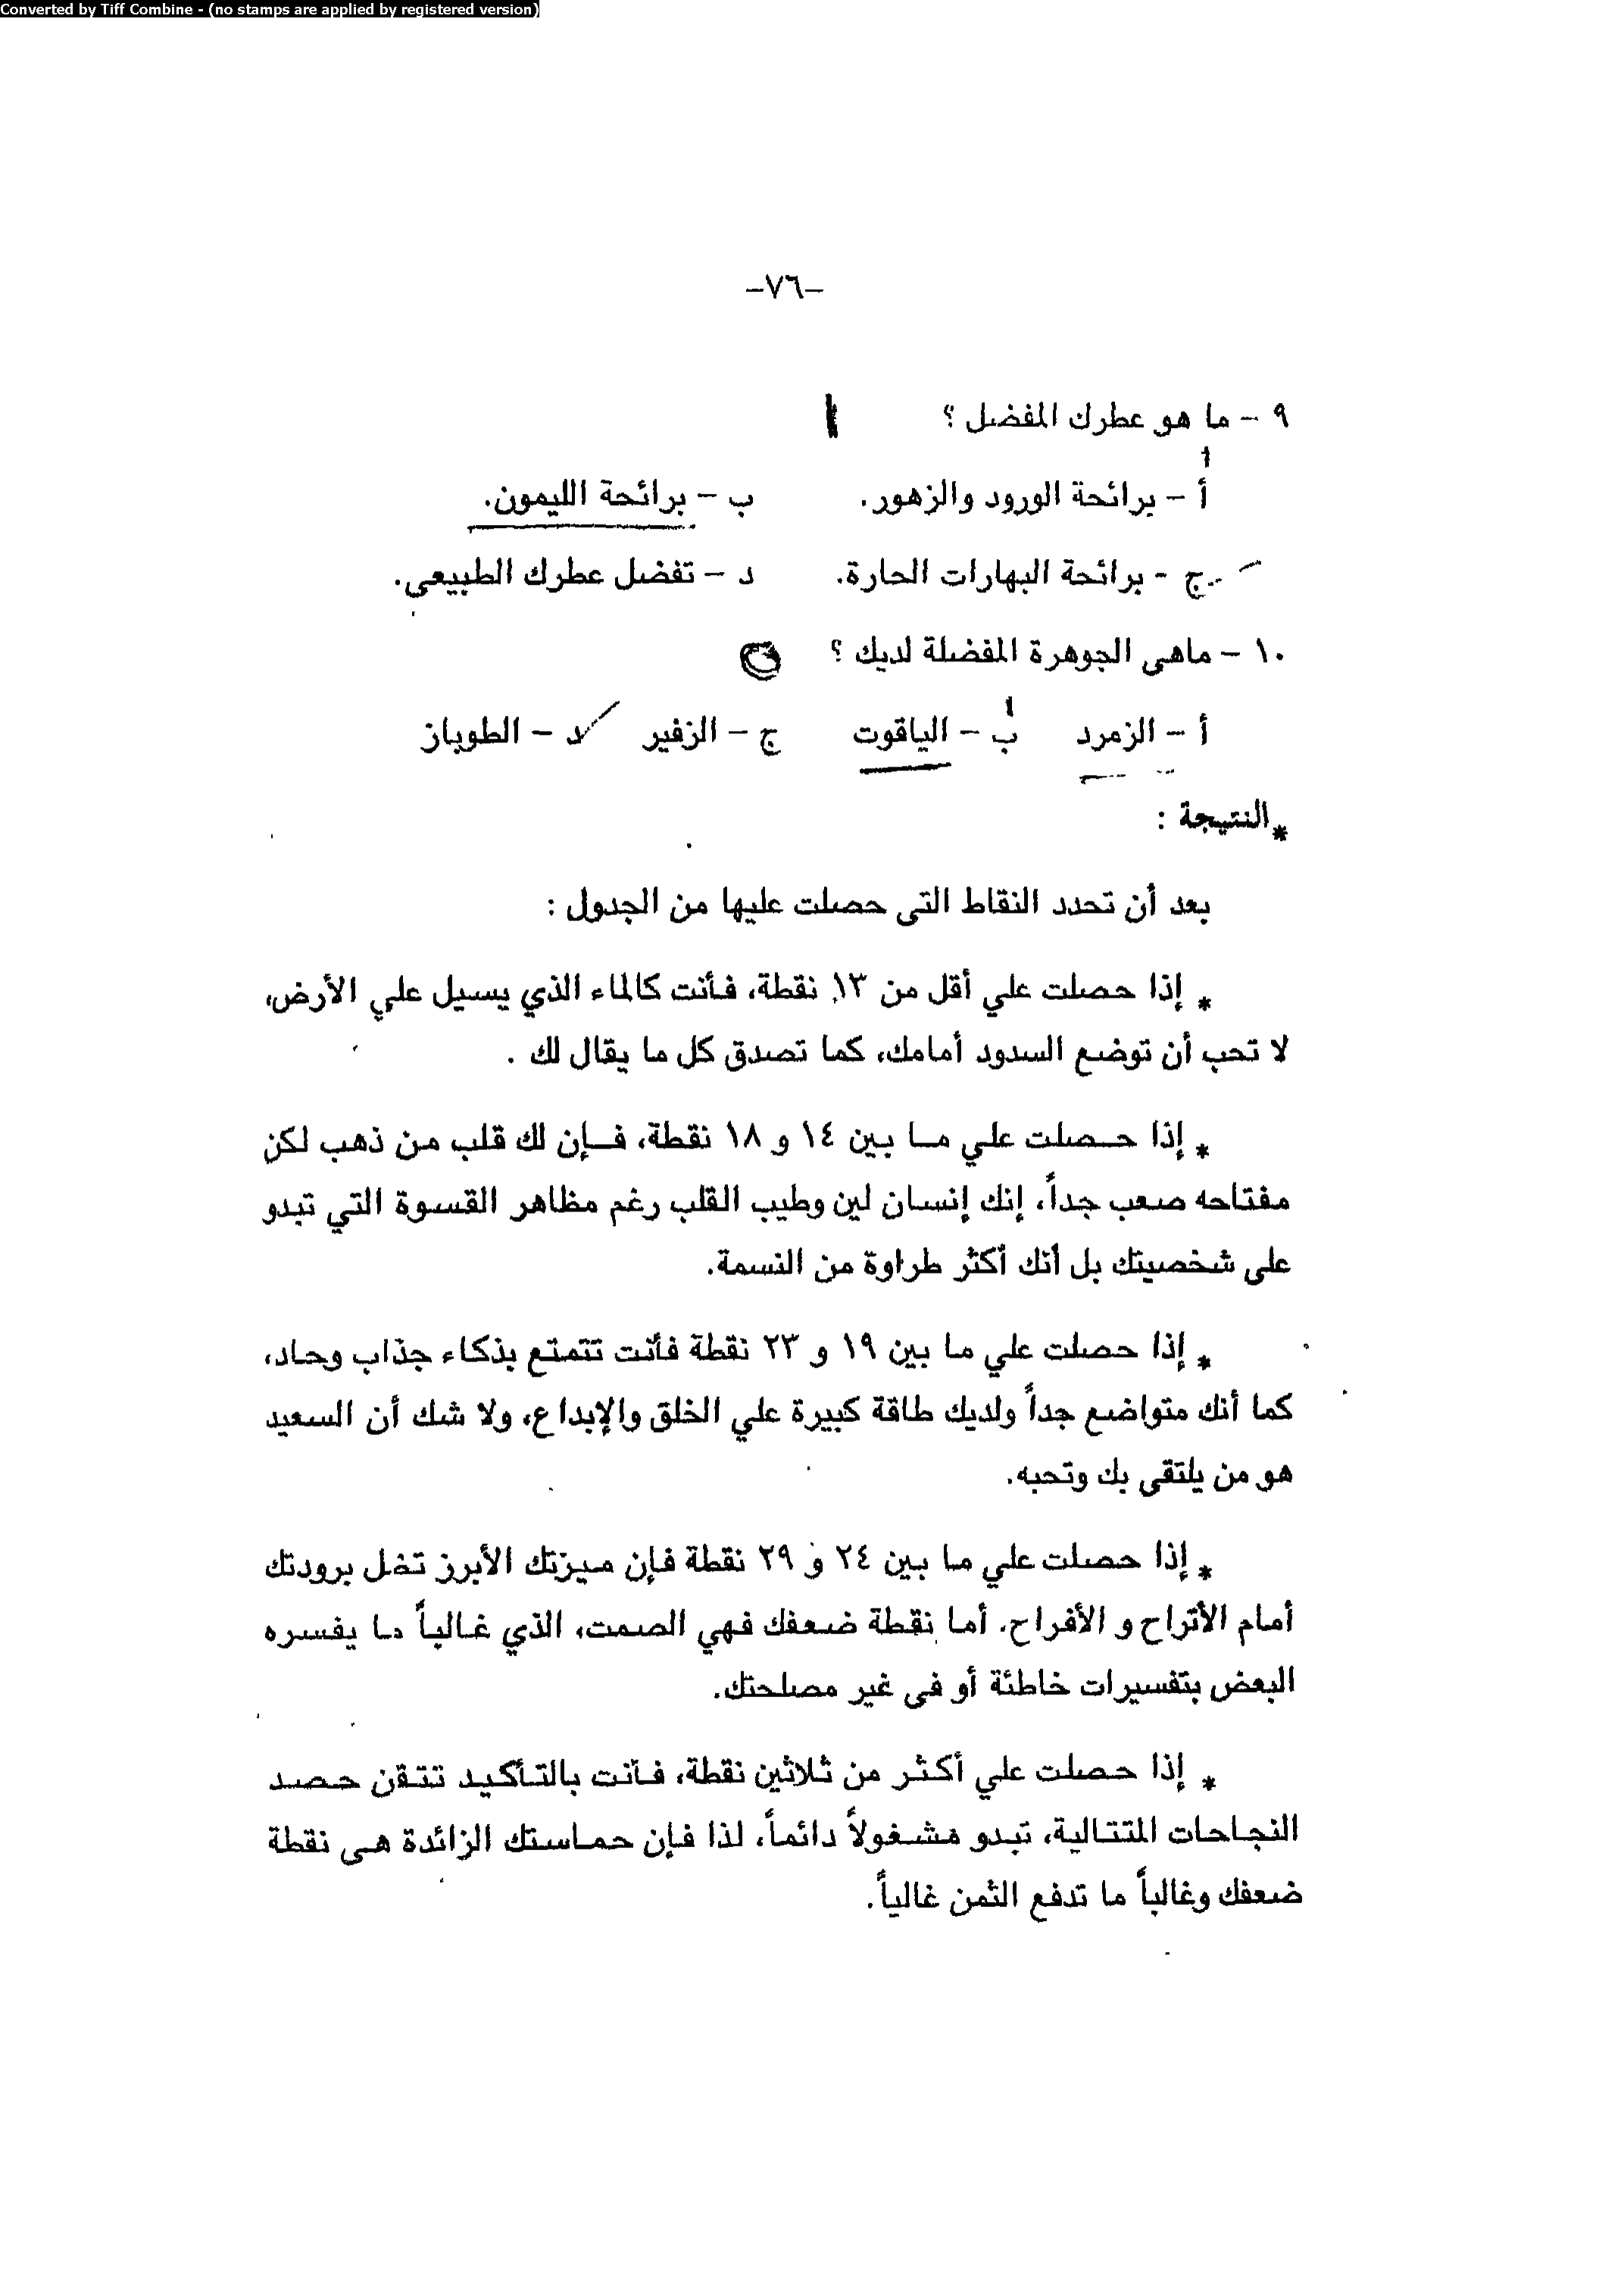 Converted by Tiff Combine - (no stamps are applied by registered version)
-٧٦-
٩ - ما هو عطرك المفضل ؟
أ - برائحة الورود والزهور. ب - برائحة الليمون.
ج - برائحة البهارات الحارة. د - تفضل عطرك الطبيعى.
١٠ - ماهى الجوهرة المفضلة لديك ؟
أ - الزمرد ب - الياقوت ج - الزفير د - الطوباز
* النتيجة :
بعد أن تحدد النقاط التى حصلت عليها من الجدول :
* إذا حصلت علي أقل من ١٣ نقطة، فأنت كالماء الذي يسيل علي الأرض،
لا تحب أن توضع السدود أمامك، كما تصدق كل ما يقال لك .
* إذا حصلت علي ما بين ١٤ و ١٨ نقطة، فإن لك قلب من ذهب لكن
مفتاحه صعب جداً، إنك إنسان لين وطيب القلب رغم مظاهر القسوة التي تبدو
على شخصيتك بل أنك أكثر طراوة من النسمة.
* إذا حصلت علي ما بين ١٩ و ٢٣ نقطة فأنت تتمتع بذكاء جذاب وحاد،
كما أنك متواضع جداً ولديك طاقة كبيرة علي الخلق والإبداع، ولا شك أن السعيد
هو من يلتقى بك وتحبه.
* إذا حصلت علي ما بين ٢٤ و ٢٩ نقطة فإن ميزتك الأبرز تخل برودتك
أمام الأتراح و الأفراح. أما نقطة ضعفك فهي الصمت، الذي غالباً ما يفسره
البعض بتفسيرات خاطئة أو فى غير مصلحتك.
* إذا حصلت علي أكثر من ثلاثين نقطة، فأنت بالتأكيد تتقن حصد
النجاحات المتتالية، تبدو مشغولاً دائماً، لذا فإن حماستك الزائدة هى نقطة
ضعفك وغالباً ما تدفع الثمن غالياً.